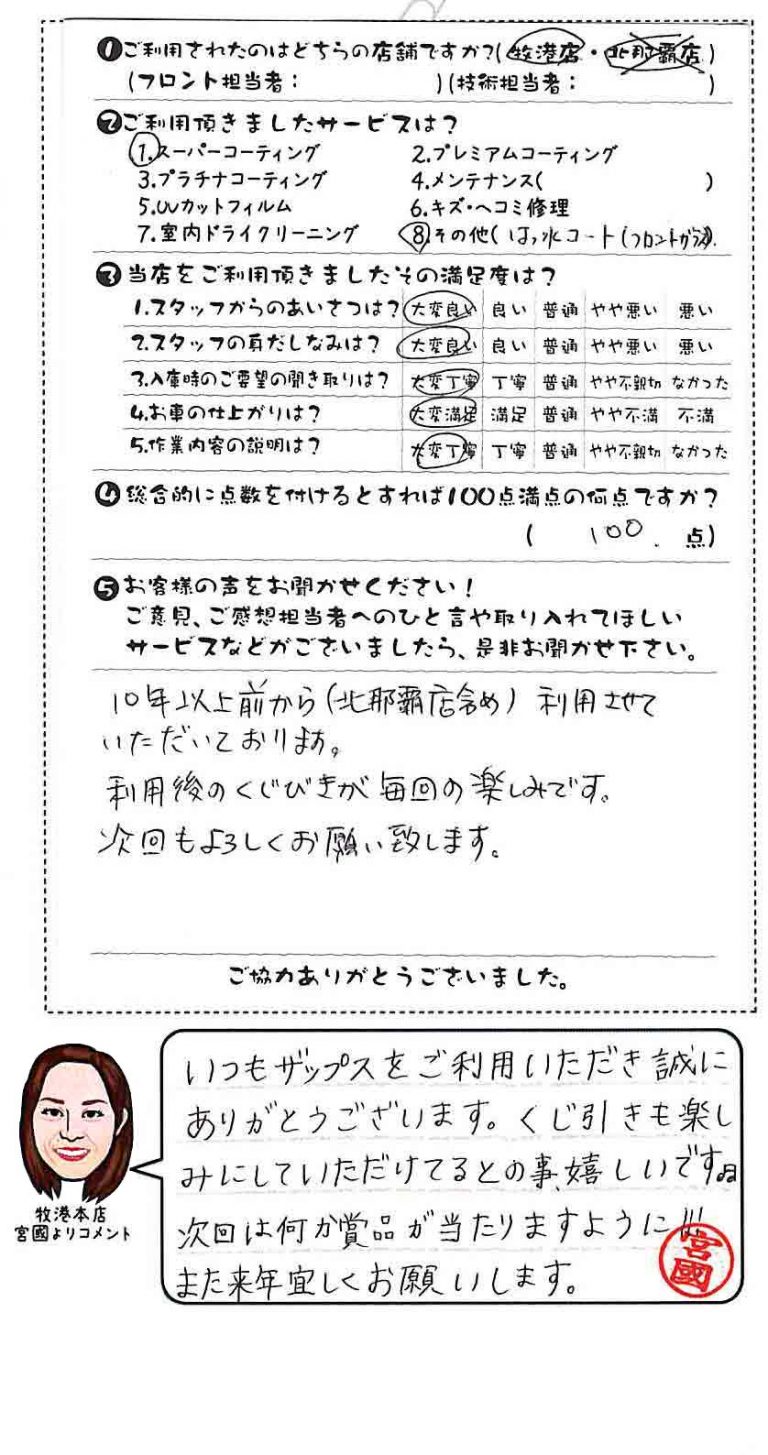 ❶ご利用されたのはどちらの店舗ですか?(牧港店・北那覇店)
(フロント担当者: )(技術担当者: )
❷ご利用頂きましたサービスは?
1.スーパーコーティング 2.プレミアムコーティング
3.プラチナコーティング 4.メンテナンス( )
5.UVカットフィルム 6.キズ・ヘコミ修理
7.室内ドライクリーニング 8.その他(はっ水コート(フロントガラス)).
❸当店をご利用頂きましたその満足度は?
1.スタッフからのあいさつは? 大変良い 良い 普通 やや悪い 悪い
2.スタッフの身だしなみは? 大変良い 良い 普通 やや悪い 悪い
3.入庫時のご要望の聞き取りは? 大変丁寧 丁寧 普通 やや不親切 なかった
4.お車の仕上がりは? 大変満足 満足 普通 やや不満 不満
5.作業内容の説明は? 大変丁寧 丁寧 普通 やや不親切 なかった
❹総合的に点数を付けるとすれば100点満点の何点ですか?
( 100. 点)
❺お客様の声をお聞かせください!
ご意見、ご感想担当者へのひと言や取り入れてほしい
サービスなどがございましたら、是非お聞かせ下さい。
10年以上前から(北那覇店含め)利用させて
いただいております。
利用後のくじびきが毎回の楽しみです。
次回もよろしくお願い致します。
ご協力ありがとうございました。
いつもザップスをご利用いただき誠に
ありがとうございます。くじ引きも楽し
みにしていただけてるとの事、嬉しいです
次回は何か賞品が当たりますように!!!
また来年宜しくお願いします。
宮國
牧港本店
宮國よりコメント